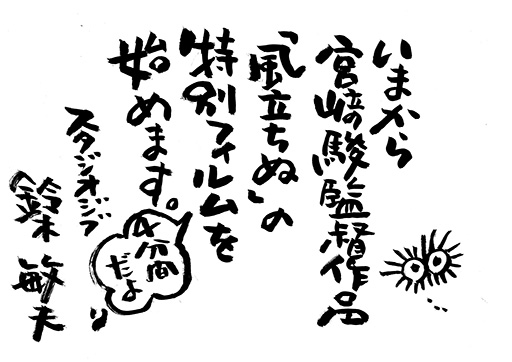 いまから
宮崎駿監督作品
「風立ちぬ」の
特別フィルムを
始めます。
4分間
だよ
スタジオジブリ
鈴木敏夫